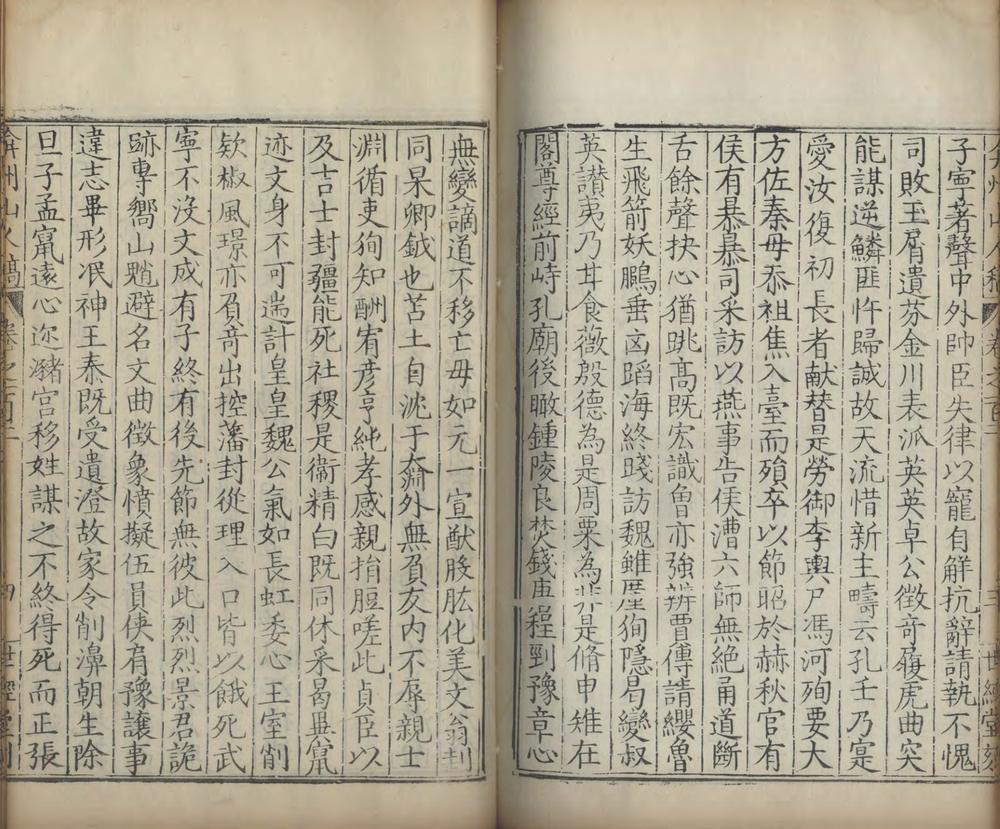 弇州山人稿 卷之一百二 三 世經堂刻
子寧著聲中外帥臣失律以寵自解抗辭請執不愧
司敗玉屑遺芬金川表派英英卓公徵竒癈虎曲突
能謀逆鱗匪忤歸誠故天流惜新主疇云孔壬乃寔
愛汝復初長者献替是勞御李輿尸馮河殉要大
方佐秦毋忝祖焦入臺而殞卒以節昭於赫秋官有
侯有暴暴司采訪以燕事告侯漕六師無絶甬道斷
舌餘聲抉心猶跳髙既宏識魯亦強辨賈傳請纓魯
生飛箭妖鵬垂凶蹈海終踐訪魏雖厓狥隱曷變叔
英讃夷乃甘食薇殷德為是周粟為非是脩申雉在
閣尊經前峙孔廟後瞰鍾陵良焚錢庙程剄豫章心
無變謫道不移亡毋如元一宣猷股肱化美文翁封
同杲卿鉞也苫土自沈于齋外無負友内不辱親士
淵循吏狥知酬宥彦亨純孝感親揹脰嗟此貞臣以
及吉士封疆能死社稷是衞精白既同休采曷畢甯
迹文身不可遄計皇皇魏公氣如長虹委心王室削
欵椒風璟亦負竒出控藩封從理入口皆以餓死武
寧不沒文成有子終有後先節無彼此烈烈景君詭
跡專嚮山魈避名文曲徵象憤擬伍員俠肩豫讓事
違志畢形冺神王泰既受遺澄故家令削濞朝生除
旦子孟甯遠心迩瀦宫移姓謀之不終得死而正張
弇州山人稿 卷之一百二 四 世經堂刻